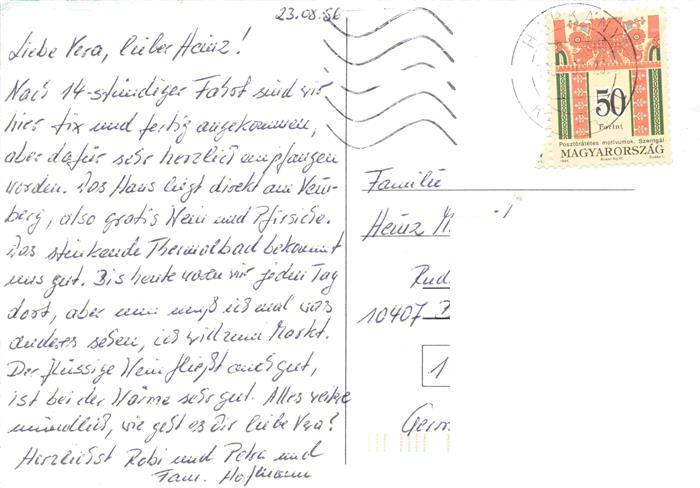 23.08.96
Liebe Vera, lieber Heinz!
Nach 14-stündiger Fahrt sind wir
hier fix und fertig angekommen,
aber dafür sehr herzlich empfangen
worden. Das Haus liegt direkt am Wein-
berg, also gratis Wein und Pfirsiche.
Das stinkende Thermalbad bekommt
uns gut. Bis heute waren wir jeden Tag
dort, aber nun muß ich mal was
anderes sehen, ich will zum Markt.
Der flüssige Wein fließt auch gut,
ist bei der Wärme sehr gut. Alles weitere
mündlich, wie geht es Dir liebe Vera?
Herzlichst Robi und Petra und
Fam. Hoffmann
50
Forint
Posztórátétes motívumok. Szentgál
MAGYARORSZÁG
Familie
Heinz
10407
1